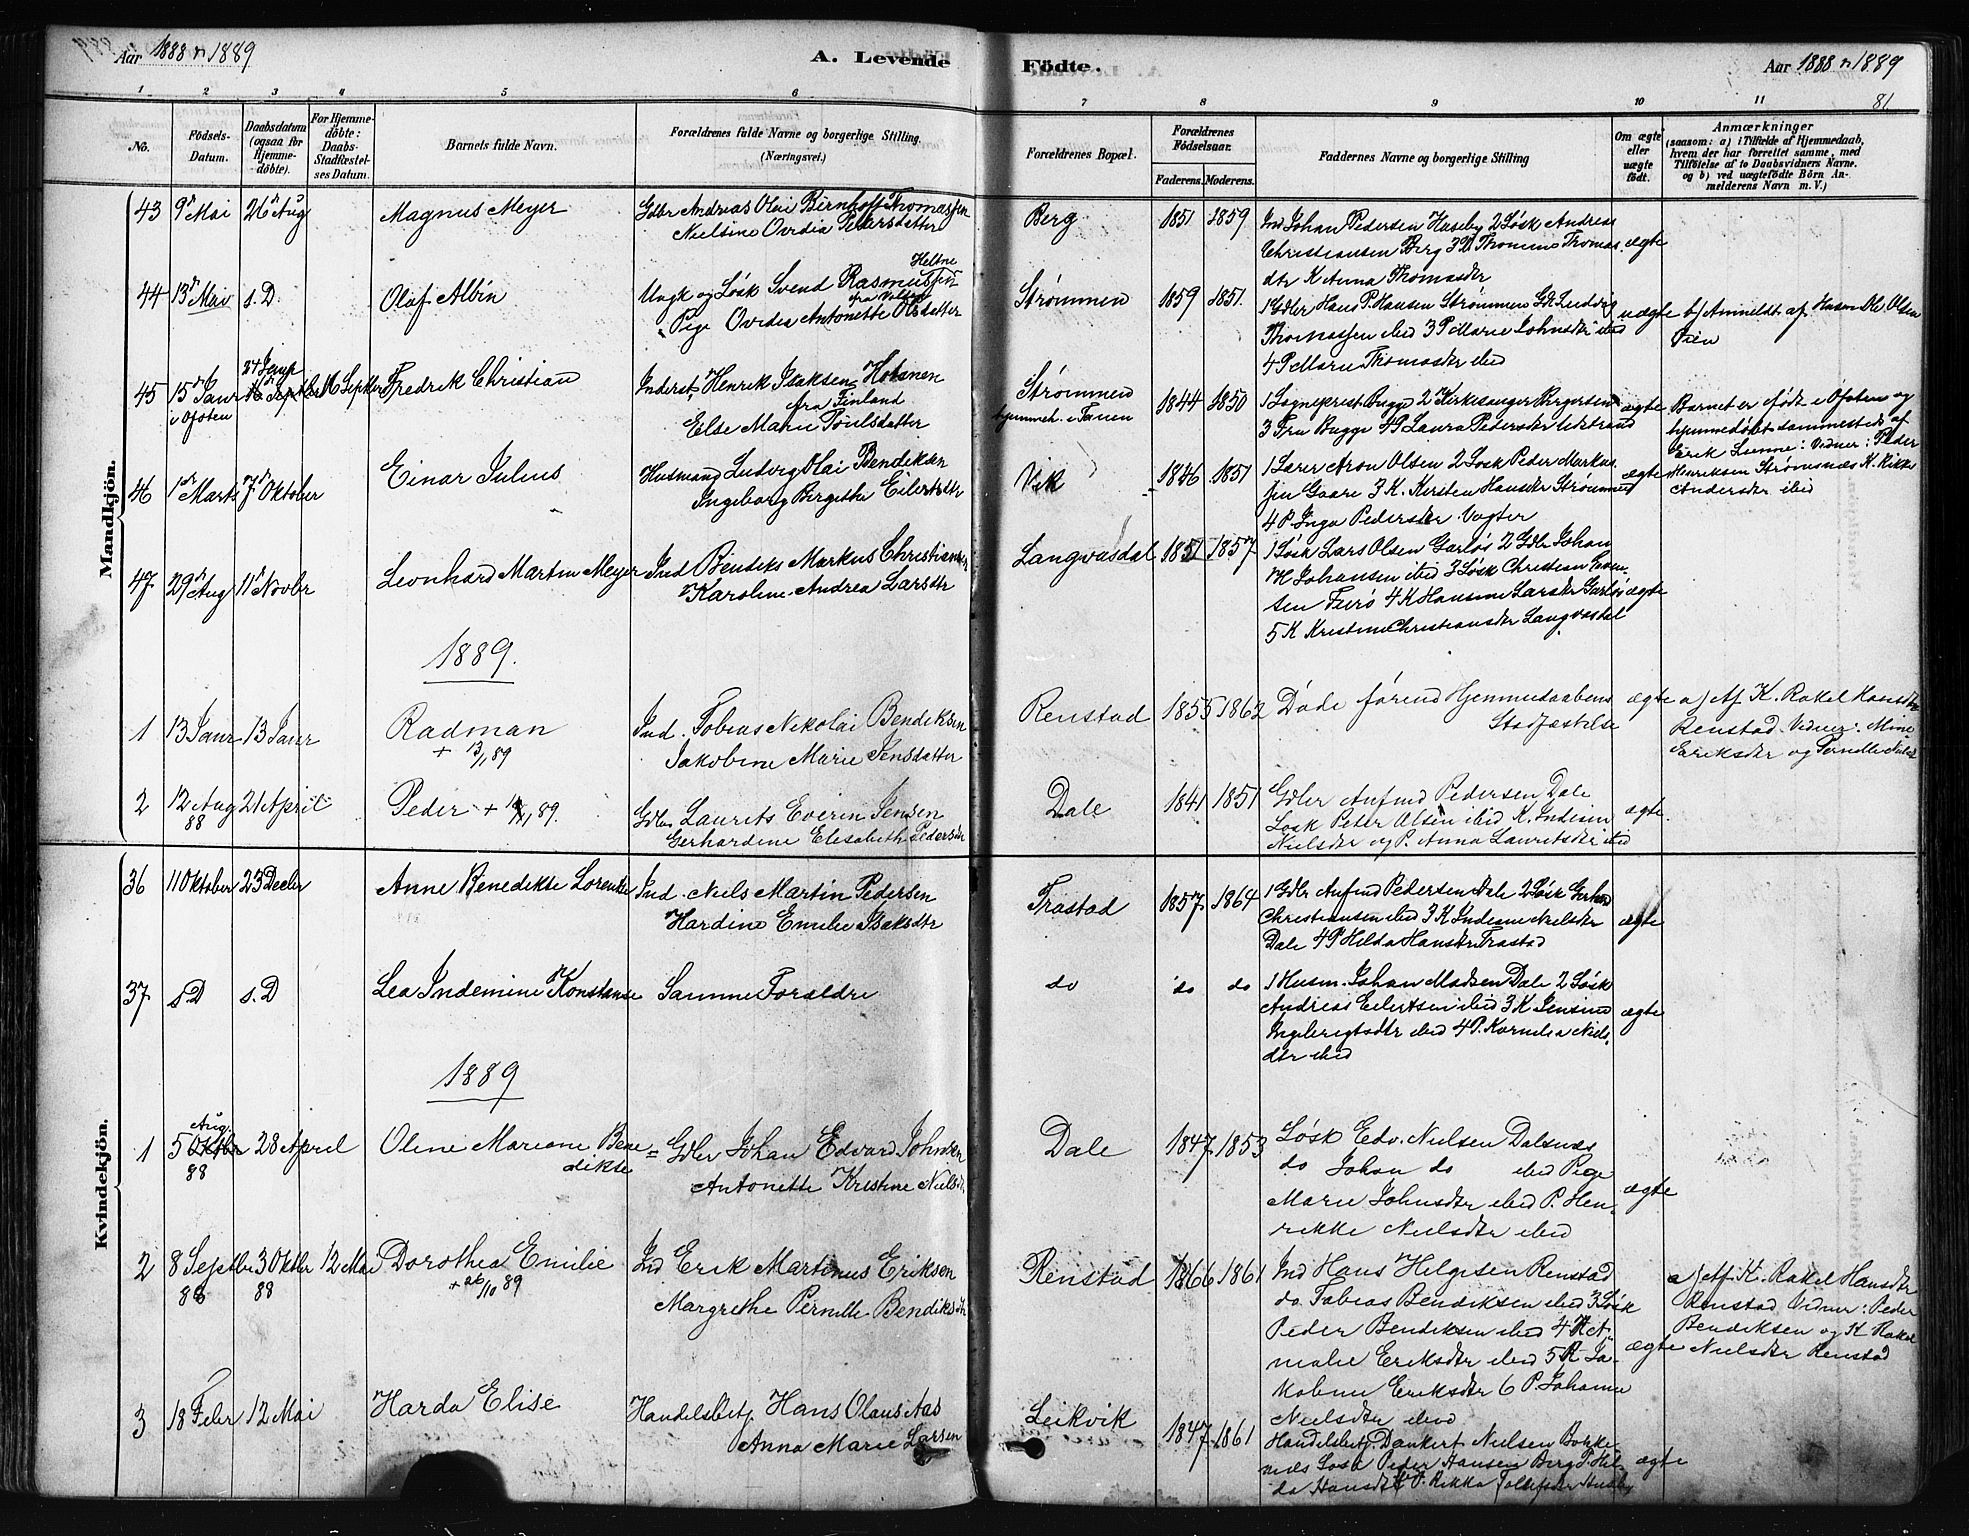 Aar 1888 n 1889
A. Levende
Födte.
Aar 1888 n 1889
81
1 2 3 4 5 6 7 8 9 10 11
No.
Födsels-Datum.
Daabsdatum (ogsaa for Hjemme-döbte).
For Hjemme-döbte: Daabs-Stadfæstel-ses Datum.
Barnets fulde Navn.
Forældrenes fulde Navne og borgerlige Stilling.
(Næringsvei.)
Forældrenes Bopæl.
Forældrenes Födselsaar.
Faderens. Moderens.
Faddernes Navne og borgerlige Stilling
Om ægte eller uægte födt.
Anmærkninger
(saasom: a) i Tilfælde af Hjemmedaab,
hvem der har forrettet samme, med
Tilföielse af to Daabsvidners Navne.
og b) ved uægtefödte Börn An-
melderens Navn m. V.)
Mandkjön.
43 9 Mai 26 Aug Magnus Meyer
Gdbr Andreas Olai Birnhoff Thomassen
Nielsine Overdia Pedersdatter
Berg 1851 1859
Ind Johan Pedersen Huseby 2 Løsk Andreas
Christiansen Berg 3 P Thomine Thomas
dtr K Anna Thomasdtr
ægte
44 13 Mai s. D Olaf Albin
Ungk og Løsk Svend Rasmussen
Pige Ovedia Antonette Olsdatter
Strømmen 1859 1851
1 Gdbr Hans P. Hansen Strømmen
Thomassen ibid 3 P Marie Johnsdtr ibid
4 P Marie Thomasdtr ibid
uægte
b) Anmeldt af Hasen Ole Olsen
45 15 Janr i Ofoten 16 Septbr Fredrik Christian
Inderst, Henrik Isaksen
fra Finland
Else Marie Poulsdatter
Strømmen
1844 1850
1 Sogneprest Bugge 2 Kirkesanger Birgersen
3 Fru Bugge 4 P Laura Pedersdtr
ægte
Barnet er født i Ofoten og
hjemmedøbt sammesteds af
Erik Vidner: Peder
Henriksen Strømsnæs K. Rikke
Andersdtr ibid
46 1 Marts 7 Oktober Einar Julius
Husmand Ludvig Olai Bendiksen
Ingeborg Bergithe Eilertsdtr
Vik 1846 1851
1 Lærer Aron Olsen 2 Løsk Peder Markus
sen Gaare 3 K. Kirsten Hansdtr Strømmen
4 P Inga Pedersdtr Vagter
ægte
47 29 Aug 11 Novbr Leonhard Martin Meyer
Ind Bendiks Markus Christiansen
Karoline Andrea Larsdtr
Langvasdal 1851 1857
1 Løsk Lars Olsen Garløs 2 Gdbr Johan
M Johansen ibid 3 Løsk Christian
sen 4 K Hansine Larsdtr Garløs
5 K Kristine Christiansdtr Langvasdal
ægte
1889.
1 13 Janr 13 Janr Radman
+ 13/1 89
Ind. Tobias Nikolai Bendiksen
Jakobine Marie Jensdatter
Renstad 1855 1862
Døde førend Hjemmedaabens
Stadfæstelse
ægte
a) Af K. Rakel Hansdtr
Renstad. Vidner: Mine
Eriksdtr og Pernille
2 12 Aug 88 21 April Peder
Gdbr Laurits Everin Jensen
Gerhardine Elisabeth Pedersdtr
Dale 1841 1851
Gdbr Anfind Pedersen Dale
Løsk Peter Olsen ibid K. Indianne
Nielsdtr og P. Anna Lauritsdtr ibid
ægte.
Kvindekjön.
36 11 Oktober 23 Decbr Anne Benedikte Lorentse
Ind. Niels Martin Pedersen
Hardine Emilie Isaksdtr
Trastad 1857 1864
1 Gdbr Anfind Pedersen Dale 2 Løsk Gerhard
Christiansen ibid 3 K Indianne Nielsdtr
Dale 4 P Hilda Hansdtr Trastad
ægte
37 s D s. D Lea Indemine Konstanse
Samme Forældre
do do do
1 Husm. Johan Madsen Dale 2 Løsk
Andreas Eilertsen ibid 3 K Jensine
Ingebrigtsdtr ibid 4 P. Kornelia Niels
dtr ibid
ægte
1889
1 5 Aug. 88 28 April Oline Mariane Bene
dikte
Gdbr Johan Edvard Johnsen
Antonette Kristine Nielsdtr
Dale 1847 1853
Løsk Edv. Nielsen Dalsnæs
do Johan do ibid Pige
Marie Johnsdtr ibid P. Hen
rikke Nielsdtr ibid
ægte
2 8 Septbr 88 3 Oktbr 88 12 Mai Dorothea Emilie
+ 26/10 89
Ind Erik Martinus Eriksen
Margrethe Pernille Bendiksdtr
Renstad 1866 1861
Ind Hans Helgesen Renstad
do. Tobias Bendiksen ibid 3 Løsk
Peder Bendiksen ibid 4 K A
malie Eriksdtr ibid 5 K Ja
kobine Eriksdtr 6 P. Johanna
Nielsdtr ibid
ægte
a) Af K. Rakel Hansdtr
Renstad Vidner: Peder
Bendiksen og K Rakel
Nielsdtr Renstad
3 18 Febr 12 Mai Harda Elise
Handelsbetj. Hans Olaus Aas
Anna Marie Larsen
Leikvik 1847 1861
Handelsbetj. Dankert Nielsen Bokke
næs Løsk Peder Hansen Berg P. Hil
da Hansdtr P. Rikka Tollefsdtr
ægte